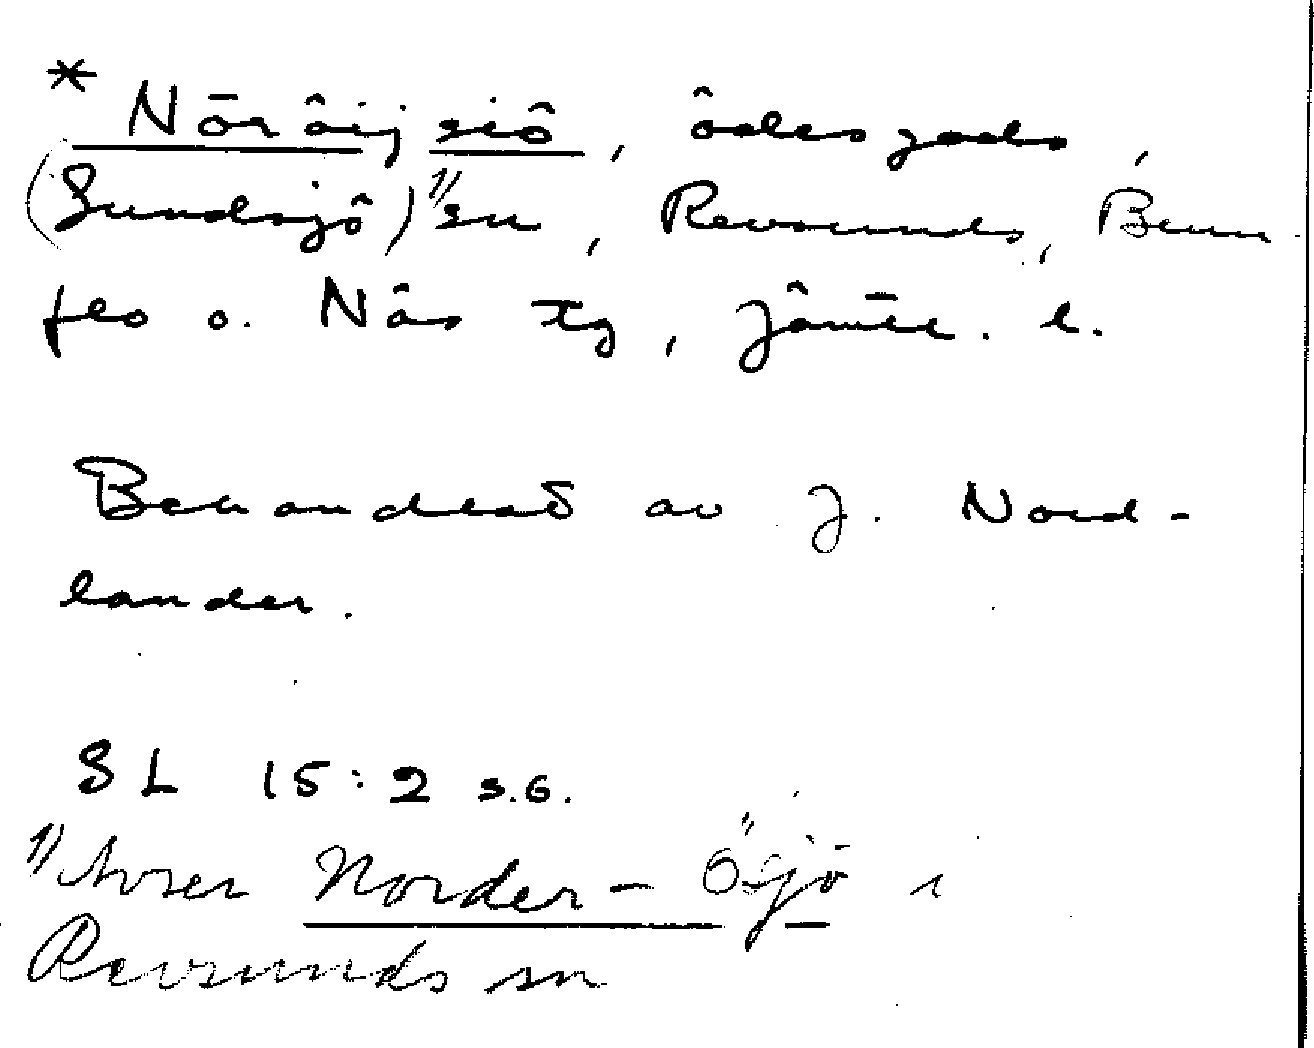 * Nöröijsiö, ödesjords,
(Sundsjö)¹⁾ sn, Revsunds, Brun
flo o. Näs tg, Jämtl. l.
Behandlat av J. Nord-
lander.
SL 15:2 s. 6.
¹⁾ Avser Norder-Ösjö i
Revsunds sn